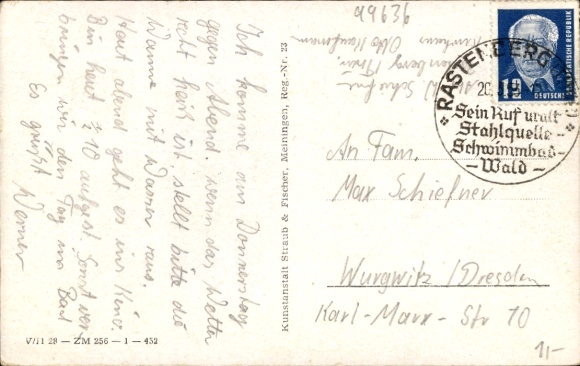 99636
Ich komme am Donnerstag
gegen Abend. wenn das Wetter
recht heiß ist, stellt bitte die
Wanne mit Wasser raus.
Heut abend geht es ins Kino.
Bin heut 10 aufgest. Sonst ver-
bringen wir den Tag im Bad
Es grüßt Werner
Kunstanstalt Straub & Fischer, Meiningen, Reg.-Nr. 23
V/11 28 — ZM 256 — 1 — 452
Otto Kaufmann
RASTENBERG
20.
Sein Ruf uralt
Stahlquelle -
Schwimmbad -
- Wald -
12
DEUTSCHE
DEMOKRATISCHE REPUBLIK
An Fam.
Max Schiefner
Wurgwitz / Dresden
Karl-Marx-Str 10
1,-